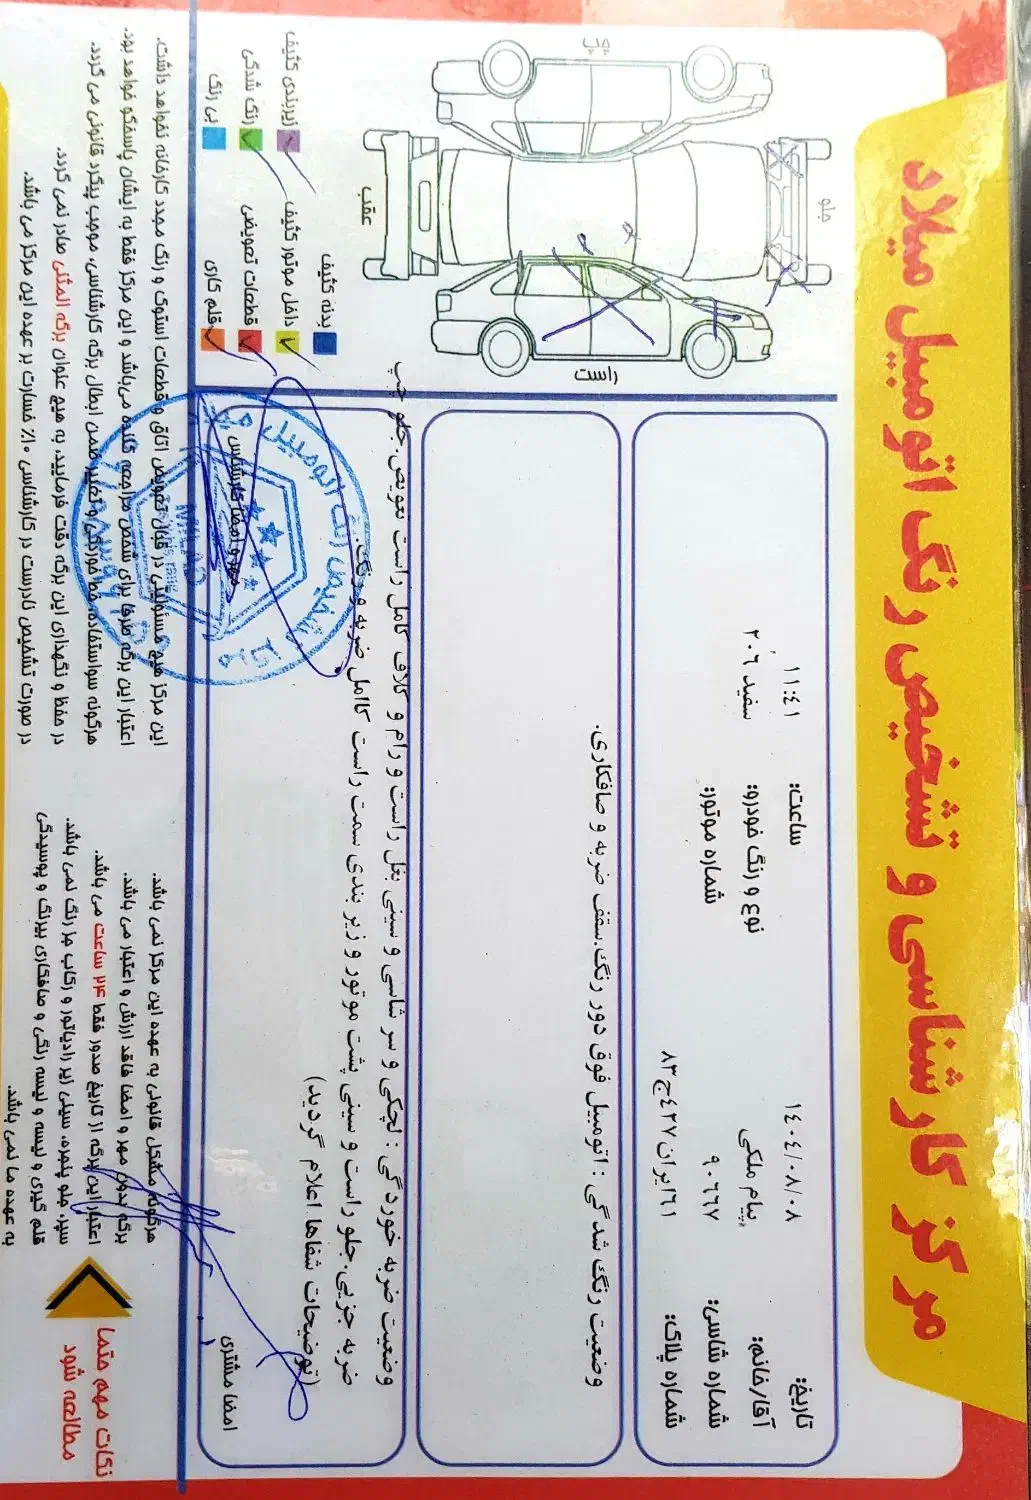 مرکز کارشناسی و تشخیص رنگ اتومبیل میلاد
تاریخ: ۱۴۰۴/۰۸/۰۸ ساعت: ۱۱:۴۱
آقا/خانم: پیام ملکی نوع و رنگ خودرو: سفید ۲۰۶
شماره شاسی: ۹۰۶۶۷ شماره موتور:
شماره پلاک: ۱۶ایران۴۲۷ج۸۳
وضعیت رنگ شدگی : اتومبیل فوق دور رنگ.سقف ضربه و صافکاری.
وضعیت ضربه خوردگی : لچکی و سر شاسی و سینی بغل راست و رام و کلاف کامل راست تعویض.جلو چپ
ضربه جزیی.جلو راست و سینی پشت موتور و زیر بندی سمت راست کاامل ضربه و رنگ.
(توضیحات شفاها اعلام گردید)
امضا مشتری
مهر و امضا کارشناس
جلو
چپ
راست
عقب
زیربندی کثیف
رنگ شدگی
بی رنگ
بدنه کثیف
داخل موتور کثیف
قطعات تعویضی
قلم کاری
نکات مهم حتما
مطالعه شود
هرگونه مشکل قانونی به عهده این مرکز نمی باشد.
برگه بدون مهر و امضا فاقد ارزش و اعتبار می باشد.
اعتبار این برگه از تاریخ صدور فقط ۲۴ ساعت می باشد.
سپر، جلو پنجره، سینی زیر رادیاتور و رکاب جز رنگ نمی باشد.
قلم گیری و لیسه و لیسه رنگی و صافکاری بیرنگ و پوسیدگی
به عهده ما نمی باشد.
این مرکز هیچ مسئولیتی در قبال تعویض اتاق و قطعات استوک و رنگ مجدد کارخانه نخواهد داشت.
اعتبار این برگه صرفا برای شخص مراجعه کننده می‌باشد و این مرکز فقط به ایشان پاسخگو خواهد بود.
هرگونه سواستفاده، خط خوردگی و تغییر ضمن ابطال برگه کارشناسی، موجب پیگرد قانونی می گردد.
در حفظ و نگهداری این برگه دقت فرمایید، به هیچ عنوان برگه المثنی صادر نمی گردد.
در صورت تشخیص نادرست در کارشناسی ۱۰٪ خسارت بر عهده این مرکز می باشد.
MILAD